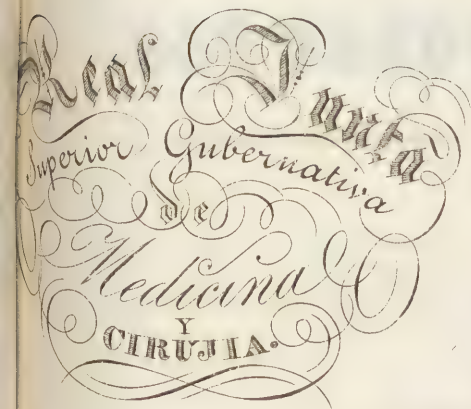 Real Junta
Superior Gubernativa
de
Medicina
Y
CIRUJIA.